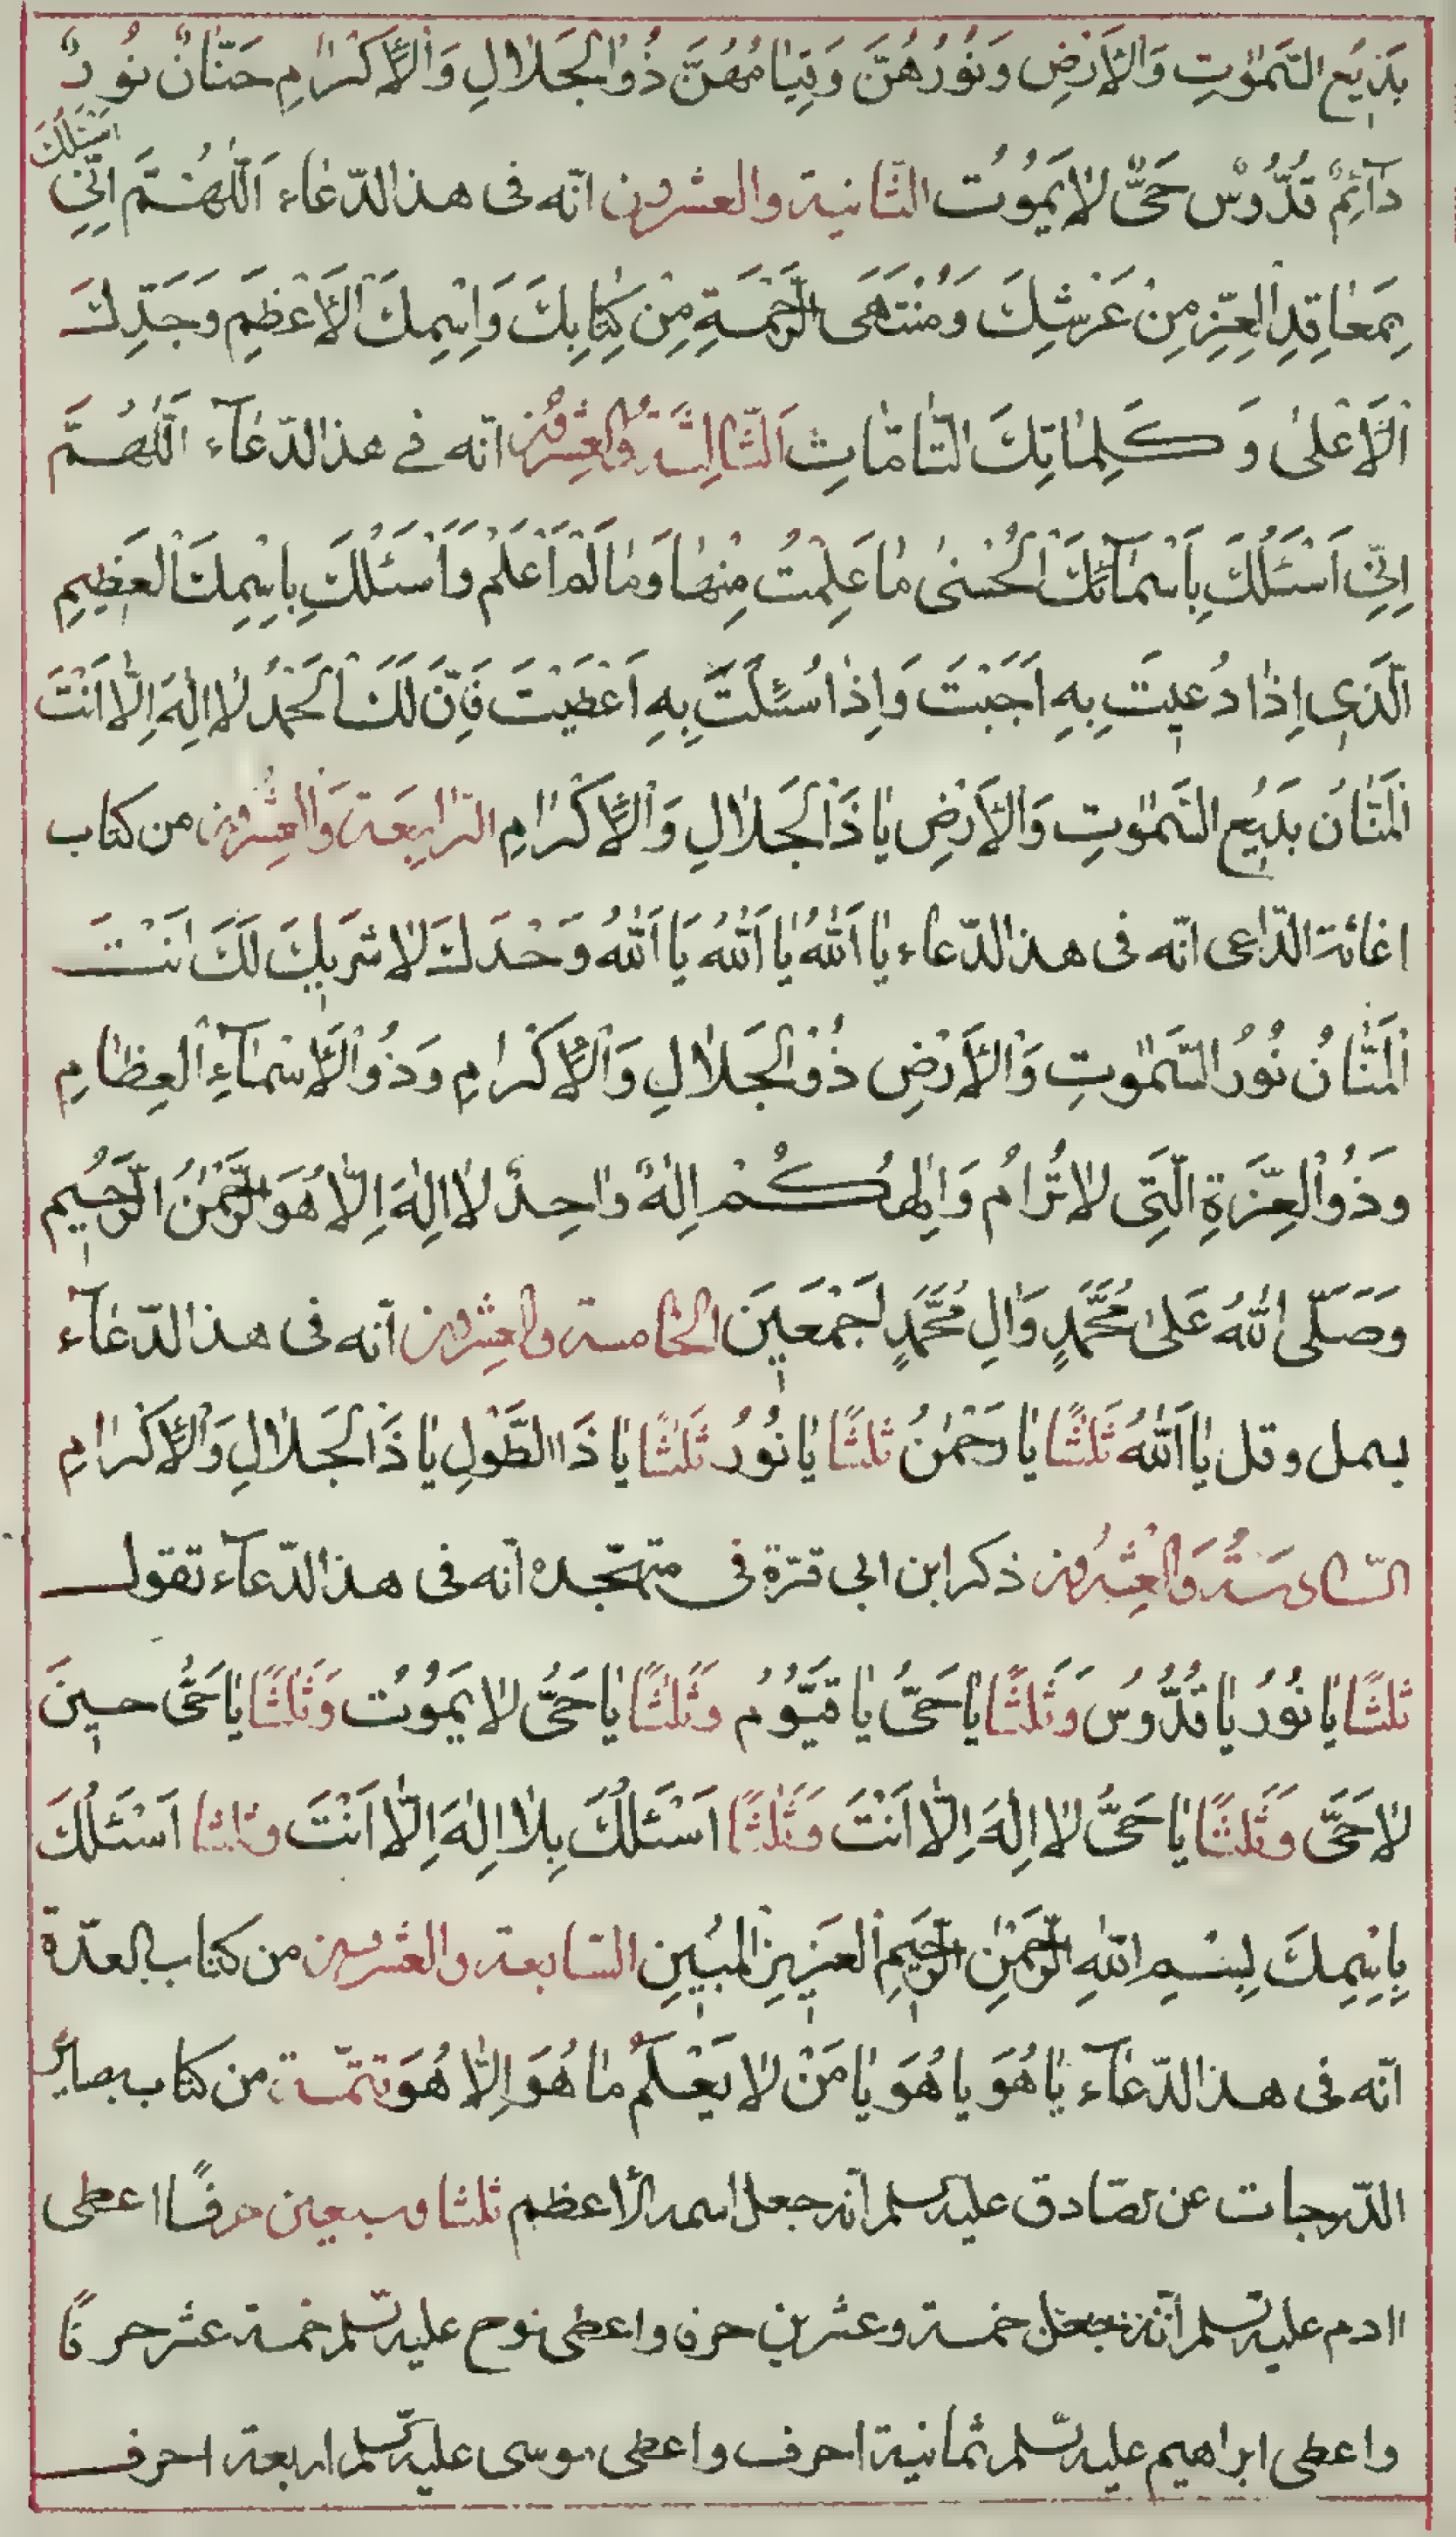 بَدِيعَ السَّمٰوٰتِ وَالْاَرْضِ وَنُورُهُنَّ وَقِيَامُهُنَّ ذُو الْجَلَالِ وَالْاِكْرَامِ حَنَّانٌ نُورٌ
دَآئِمٌ قُدُّوسٌ حَىٌّ لَا يَمُوتُ الثّانية والعشرون انّه فى هذا الدّعاء اَللّٰهُمَّ اِنِّي اَسْئَلُكَ
بِمَعَاقِدِ الْعِزِّ مِنْ عَرْشِكَ وَمُنْتَهَى الرَّحْمَةِ مِنْ كِتَابِكَ وَاِسْمِكَ الْاَعْظَمِ وَجَدِّكَ
الْاَعْلىٰ وَكَلِمَاتِكَ التَّامَّاتِ الثَّالِثَةُ وَالْعِشْرُونَ انّه في هذا الدّعآء اللّٰهُمَّ
اِنِّي اَسْئَلُكَ بِاَسْمَآئِكَ الْحُسْنىٰ مَا عَلِمْتُ مِنْهَا وَمَا لَمْ اَعْلَمْ وَاَسْئَلُكَ بِاسْمِكَ الْعَظِيمِ
الَّذِى اِذَا دُعِيتَ بِهِ اَجَبْتَ وَاِذَا سُئِلْتَ بِهِ اَعْطَيْتَ فَاِنَّ لَكَ الْحَمْدُ لَا اِلٰهَ اِلَّا اَنْتَ
الْمَنَّانُ بَدِيعُ السَّمٰوٰتِ وَالْاَرْضِ يَا ذَا الْجَلَالِ وَالْاِكْرَامِ الرّابِعَة وَالْعِشْرُونَ من كتاب
اغاثة الدّاعى انّه فى هذا الدّعاء يَا اَللّٰهُ يَا اَللّٰهُ يَا اَللّٰهُ وَحْدَكَ لَا شَرِيكَ لَكَ اَنْتَ
الْمَنَّانُ نُورُ السَّمٰوٰتِ وَالْاَرْضِ ذُو الْجَلَالِ وَالْاِكْرَامِ وَذُو الْاَسْمَآءِ الْعِظَامِ
وَذُو الْعِزَّةِ الَّتِى لَا تُرَامُ وَاِلٰهُكُمْ اِلٰهٌ وَاحِدٌ لَا اِلٰهَ اِلَّا هُوَ الرَّحْمٰنُ الرَّحِيمُ
وَصَلَّى اللّٰهُ عَلىٰ مُحَمَّدٍ وَاٰلِ مُحَمَّدٍ اَجْمَعِينَ الخامسة والعشرون انّه فى هذا الدّعآء
بسمل وقل يَا اَللّٰهُ ثَلٰثًا يَا رَحْمٰنُ ثَلٰثًا يَا نُورُ ثَلٰثًا يَا ذَا الطَّوْلِ يَا ذَا الْجَلَالِ وَالْاِكْرَامِ
السّادسَةُ وَالْعِشْرُون ذكر ابن ابى قرّة فى متهجّده انّه فى هذا الدّعآء تقول
ثَلٰثًا يَا نُورُ يَا قُدُّوسُ وَثَلٰثًا يَا حَىُّ يَا قَيُّومُ وَثَلٰثًا يَا حَىُّ لَا يَمُوتُ وَثَلٰثًا يَا حَىُّ حِينَ
لَا حَىَّ وَثَلٰثًا يَا حَىُّ لَا اِلٰهَ اِلَّا اَنْتَ وَثَلٰثًا اَسْئَلُكَ بِلَا اِلٰهَ اِلَّا اَنْتَ وثلثا اَسْئَلُكَ
بِاِسْمِكَ بِسْمِ اللّٰهِ الرَّحْمٰنِ الرَّحِيمِ الْعَزِيزِ الْمُبِينِ السّابعة والعشرون من كتاب العدّة
انّه فى هذا الدّعآء يَا هُوَ يَا هُوَ يَا مَنْ لَا يَعْلَمُ مَا هُوَ اِلَّا هُوَ تتمّة من كتاب بصائر
الدّرجات عن الصّادق عليه السلم انّه جعل اسمه الاعظم ثلثا وسبعين حرفًا اعطى
اادم عليه السّلم خمسة وعشرين حرفا واعطى نوح عليه السّلم خمسة عشر حرفًا
واعطى ابراهيم عليه السّلم ثمانية احرف واعطى موسى عليه السّلم اربعة احرف